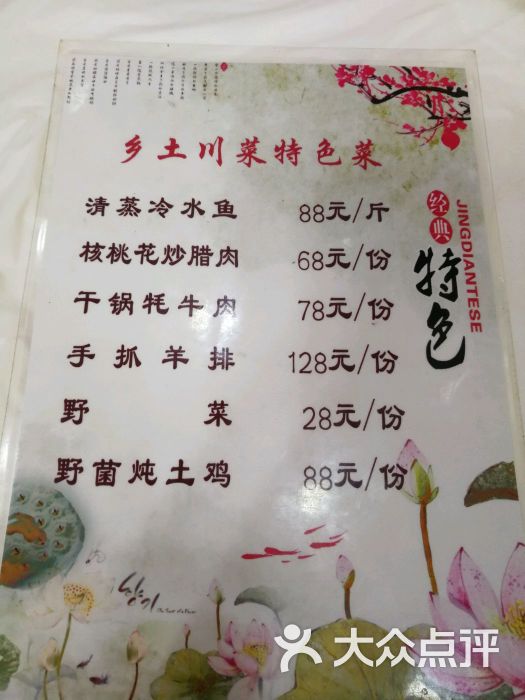 乡土川菜特色菜
清蒸冷水鱼 88元/斤
核桃花炒腊肉 68元/份
干锅牦牛肉 78元/份
手抓羊排 128元/份
野菜 28元/份
野菌炖土鸡 88元/份
经典
JINGDIANTESE
特色
大众点评